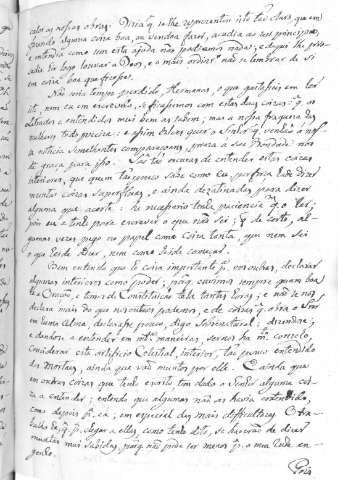 calor as nossas obras. Dizia q̃ se lhe representou isto tão claro, que em
fazendo alguma coiza boa, ou vendoa fazer, acudia ao seu principio,
e entendia como sem esta ajuda não podiamos nada; e daqui lhe pro-
cedia ir logo louvar a Deos, e o mais ordinr.º não se lembrar de si
em coiza boa que fizesse.
Não seria tempo perdido, Hermanas, o que gastasseis em ler
isto, nem eu em escrevelo, se ficassemos com estas duas coizas: q̃ os
letrados e entendidos mui bem as sabem; mas a nossa fraqueza das
mulheres tudo precisa: e assim talvez quer o Senhor q̃ venhão á nos-
sa noticia semelhantes comparaçoens, praza a sua Bondade nos
dê graça para isso. São tão escuras de entender estas coizas
interiores, que quem tão pouco sabe como eu, por força hade dizer
muitas coizas superfluas, e ainda dezatinadas, para dizer
alguma que acerte: he necessario tenha paciencia q.m o ler;
pois eu a tenho para escrever o que não sei; q̃ de certo, al-
gumas vezes pego no papel como coiza tonta, que nem sei
o que heide dizer, nem como heide começar.
Bem entendo que he coiza importante p.ª vos outras, declarar
algumas interiores como puder; porq̃ ouvimos sempre quam boa
he a Oração, e temos de Constituição tela tantas horas; e não se nos
declara mais do que nos outras podemos, e de coizas q̃ obra o Snr̃
em huma Alma, declarase pouco, digo Sobrenatural: dizendose,
e dandose a entender em m.tas maneiras, sernos ha m.to consolo,
considerar este artificio Celestial, interior, tão pouco entendido
dos mortaes, ainda que vão muitos por elle. E ainda que
em outras coizas que tenho escrito tem dado o Senhor alguma coi-
za a entender; entendo que algumas não as havia entendido,
como depois p.ª cá; em especial das mais difficultozas. O tra-
balho he q̃ p.ª chegar a ellas, como tenho dito, se haverão de dizer
muitas mui sabidas, porq̃ não póde ser menos p.ª o meu rude en-
genho.
Pois